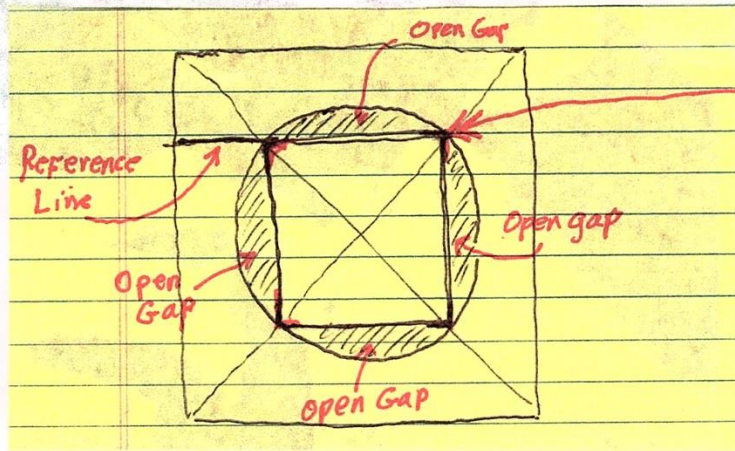 Open Gap
Reference
Line
Open gap
Open
Gap
Open Gap